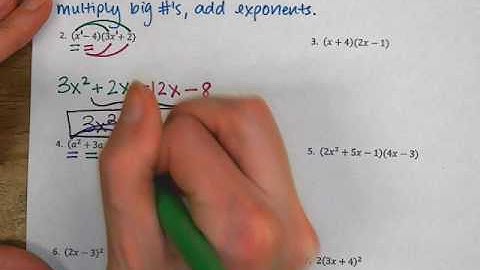 multiply big #'s, add exponents.
2. (x¹ − 4)(3x¹ + 2)
3. (x + 4)(2x − 1)
3x² + 2x − 12x − 8
3x²
4. (a² + 3a
5. (2x² + 5x − 1)(4x − 3)
6. (2x − 3)²
2(3x + 4)²